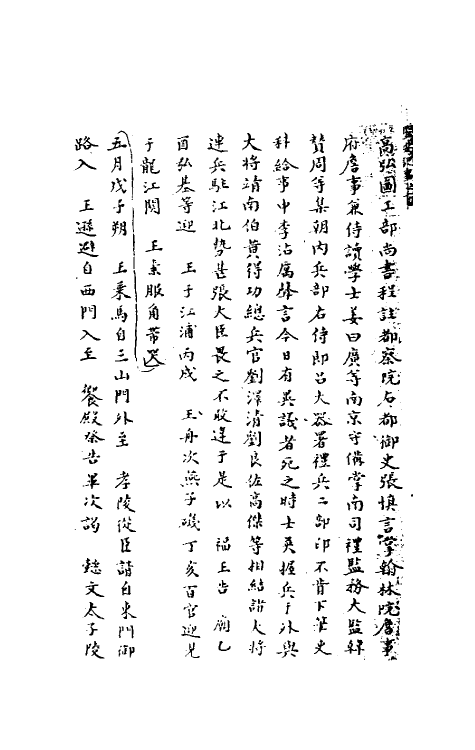 高弘圖工部尚書程註都察院右都御史張慎言掌翰林院詹事
府詹事兼侍讀學士姜曰廣等南京守備掌南司禮監務大監韓
贊周等集朝內兵部右侍郎呂大器署禮兵二部印不肯下筆吏
科給事中李沾厲聲言今日有異議者死之時士英握兵于外與
大將靖南伯黃得功總兵官劉澤清劉良佐高傑等相結諸大將
連兵駐江北勢甚張大臣畏之不敢違于是以 福王告 廟乙
酉弘基等迎 王于江浦丙戌 王舟次燕子磯丁亥百官迎見
于龍江關 王素服角帶哭
五月戊子朔 王乘馬自三山門外至 孝陵從臣請自東門御
路入 王遜避自西門入至 饗殿祭告畢次謁 懿文太子陵